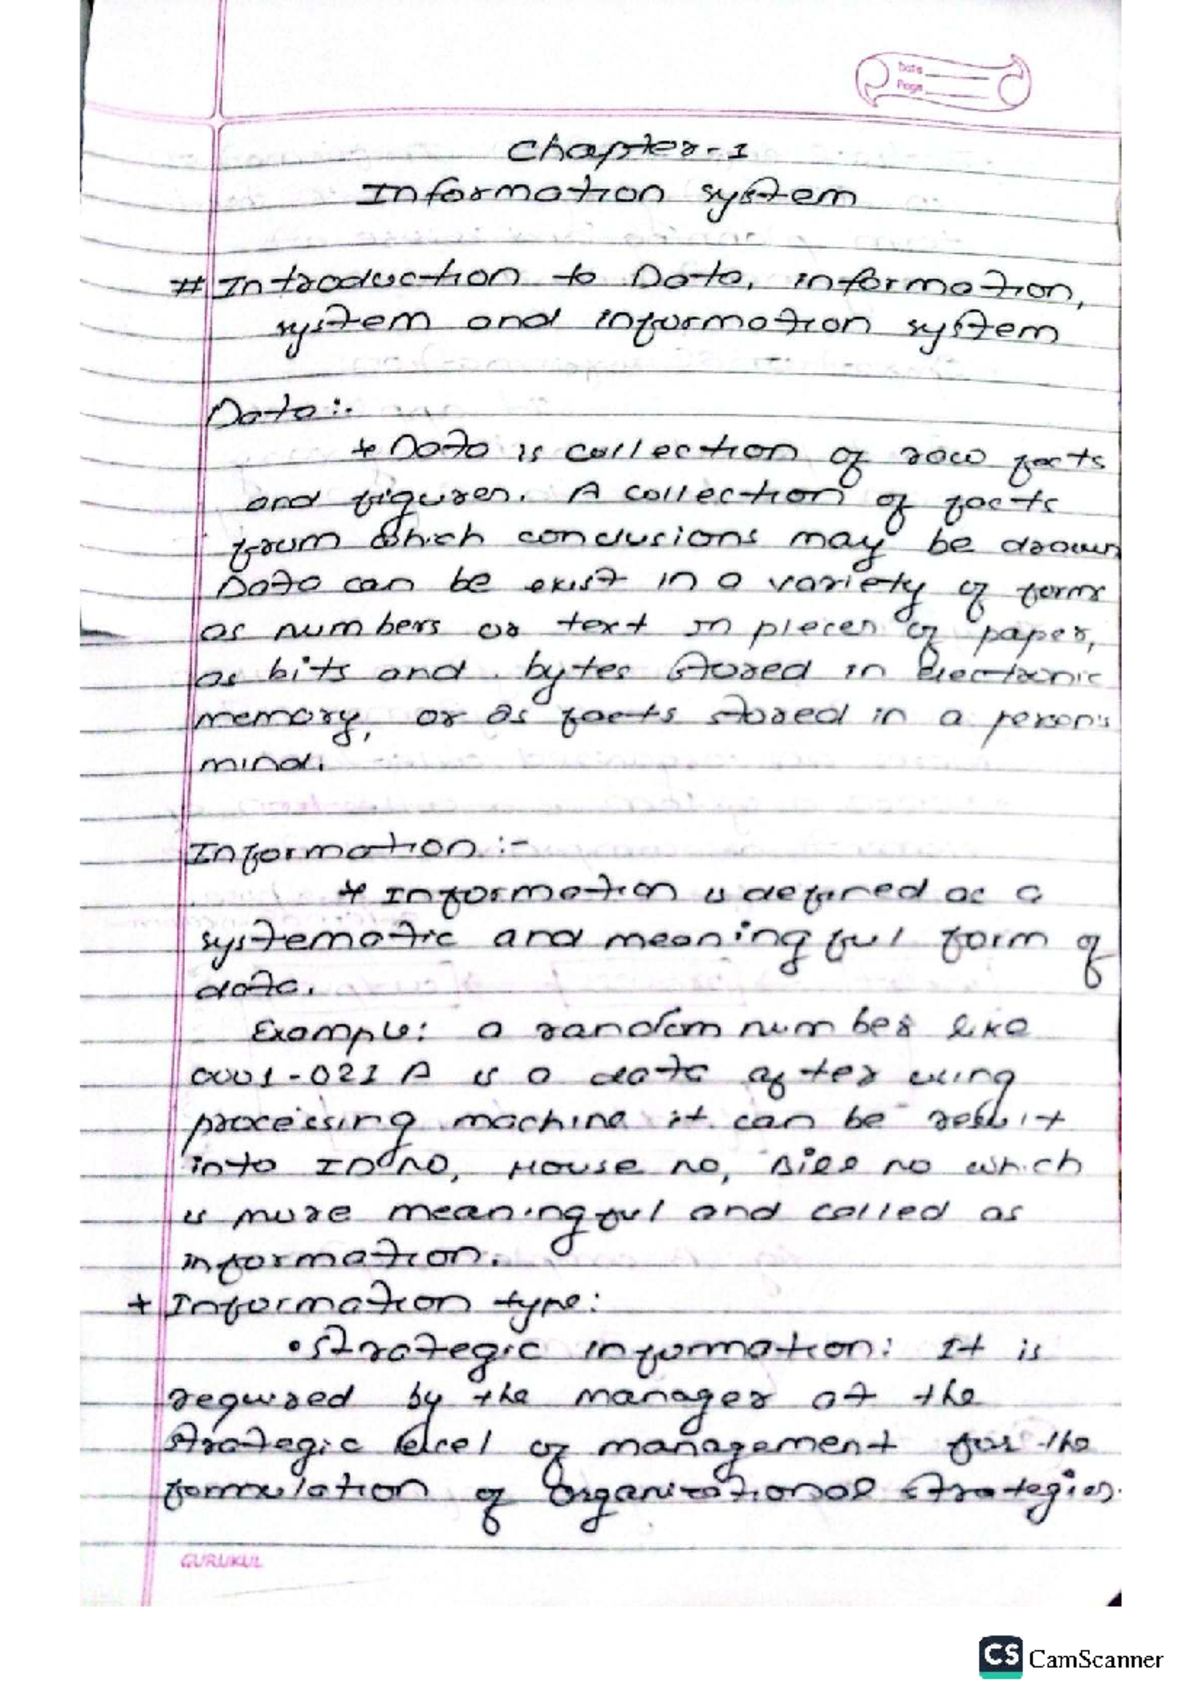 Date
Page
Chapter-1
Information system
# Introduction to Data, information,
system and information system
Data:-
* Data is collection of raw facts
and figures. A collection of facts
from which conclusions may be drawn
Data can be exist in a variety of forms
as numbers or text in pieces of paper,
as bits and bytes stored in Electronic
memory, or as facts stored in a person's
mind.
Information :-
* Information is defined as a
systematic and meaningful form of
data.
Example: a random number like
0001-021 A is a data after using
processing machine it can be result
into ID NO, House no, Bill no which
is more meaningful and called as
information.
* Information type:
• Strategic information: It is
required by the manager at the
strategic level of management for the
formulation of organizational strategies.
GURUKUL
CS CamScanner